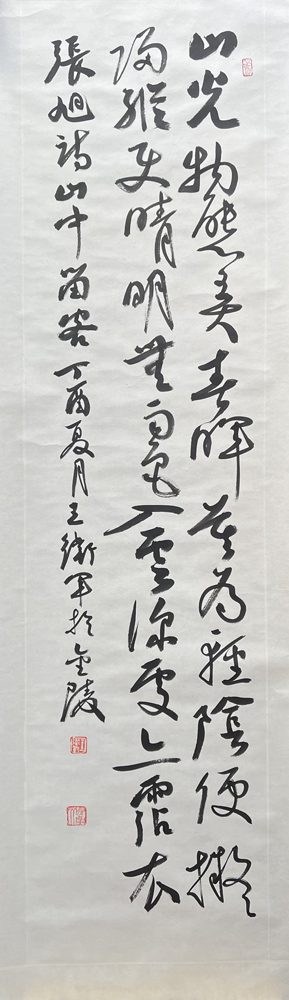 山光物態弄春暉莫為輕陰便擬
歸縱使晴明無雨色入雲深處亦霑衣
張旭詩山中留客丁酉夏月王衛軍於金陵